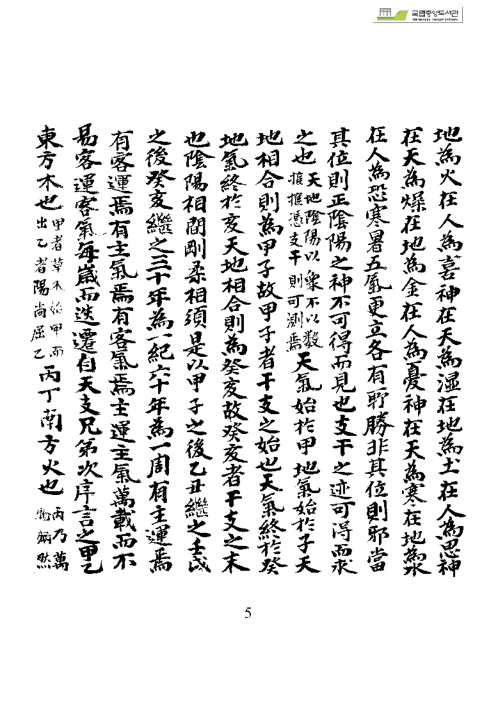 국립중앙도서관
地為火在人為喜神在天為濕在地為土在人為思神
在天為燥在地為金在人為憂神在天為寒在地為水
在人為恐寒暑五氣更立各有所勝非其位則邪當
其位則正陰陽之神不可得而見也支干之迹可得而求
之也天地陰陽以象不以數推推憑支干則可測焉天氣始於甲地氣始於子天
地相合則為甲子故甲子者干支之始也天氣終於癸
地氣終於亥天地相合則為癸亥故癸亥者干支之末
也陰陽相間剛柔相須是以甲子之後乙丑繼之壬戌
之後癸亥繼之三十年為一紀六十年為一周有主運焉
有客運焉有主氣焉有客氣焉主運主氣萬載而不
易客運客氣每歲而迭遷自天支兄第次序言之甲乙
東方木也甲者草木始甲而出乙者陽尚屈乙丙丁南方火也丙乃萬炳然
5